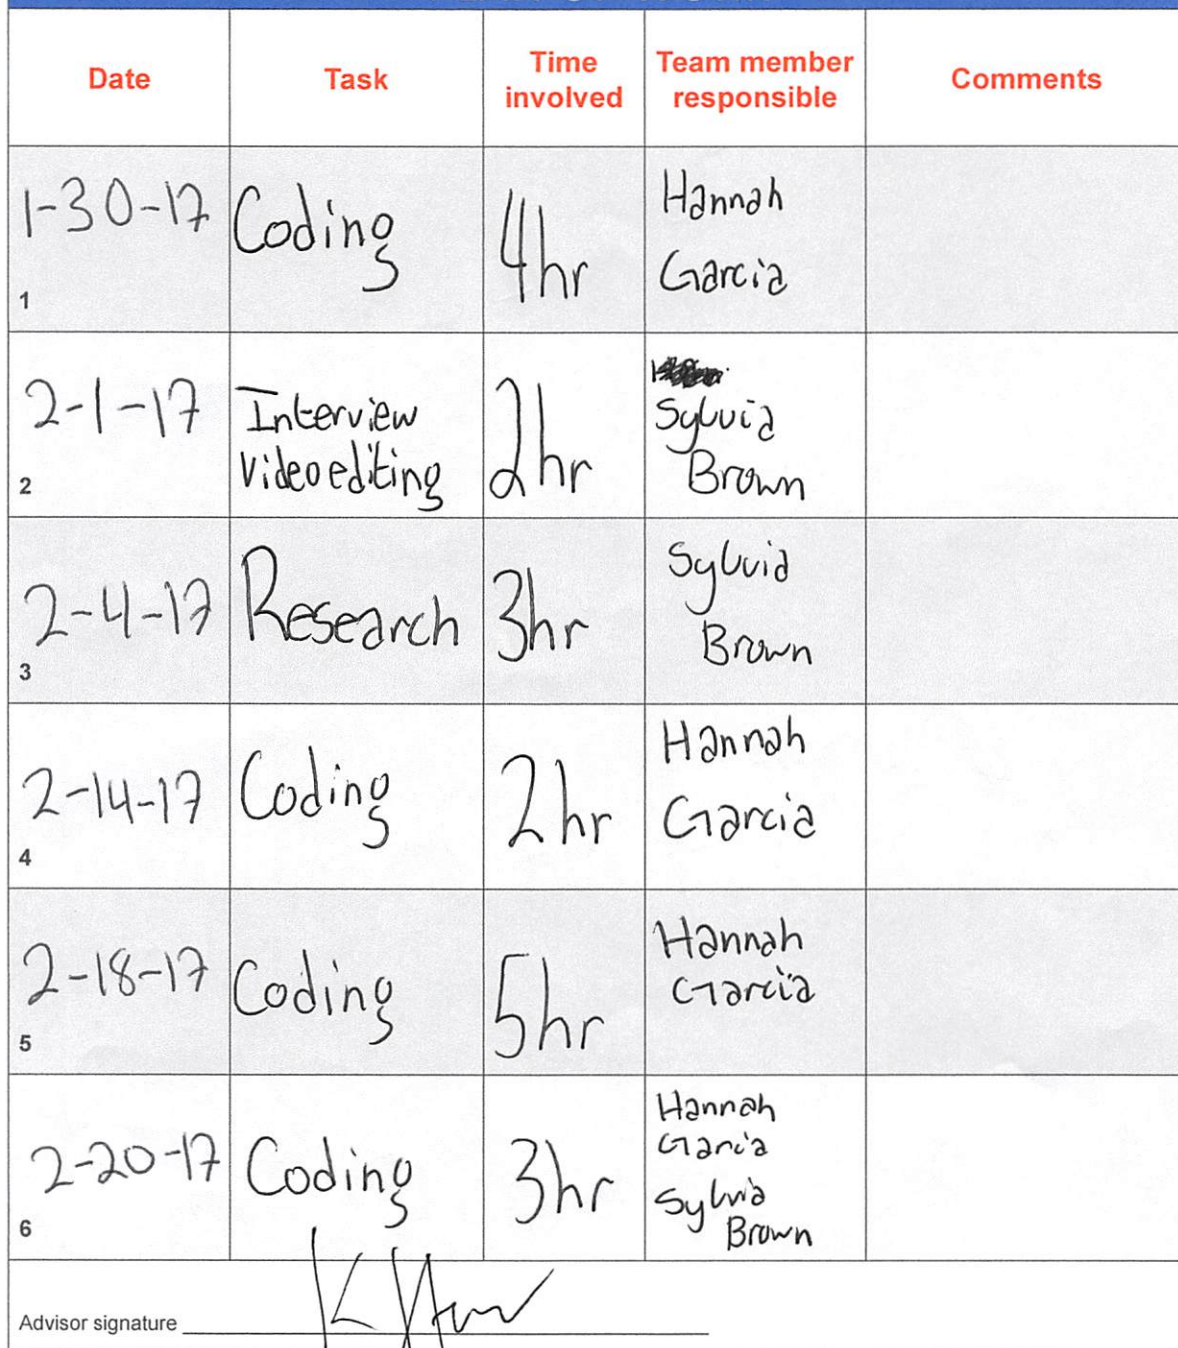 Date
Task
Time
involved
Team member
responsible
Comments
1-30-17
1
Coding
4hr
Hannah
Garcia
2-1-17
2
Interview
Video editing
2hr
Sylvia
Brown
2-4-17
3
Research
3hr
Sylvia
Brown
2-14-17
4
Coding
2hr
Hannah
Garcia
2-18-17
5
Coding
5hr
Hannah
Garcia
2-20-17
6
Coding
3hr
Hannah
Garcia
Sylvia
Brown
Advisor signature